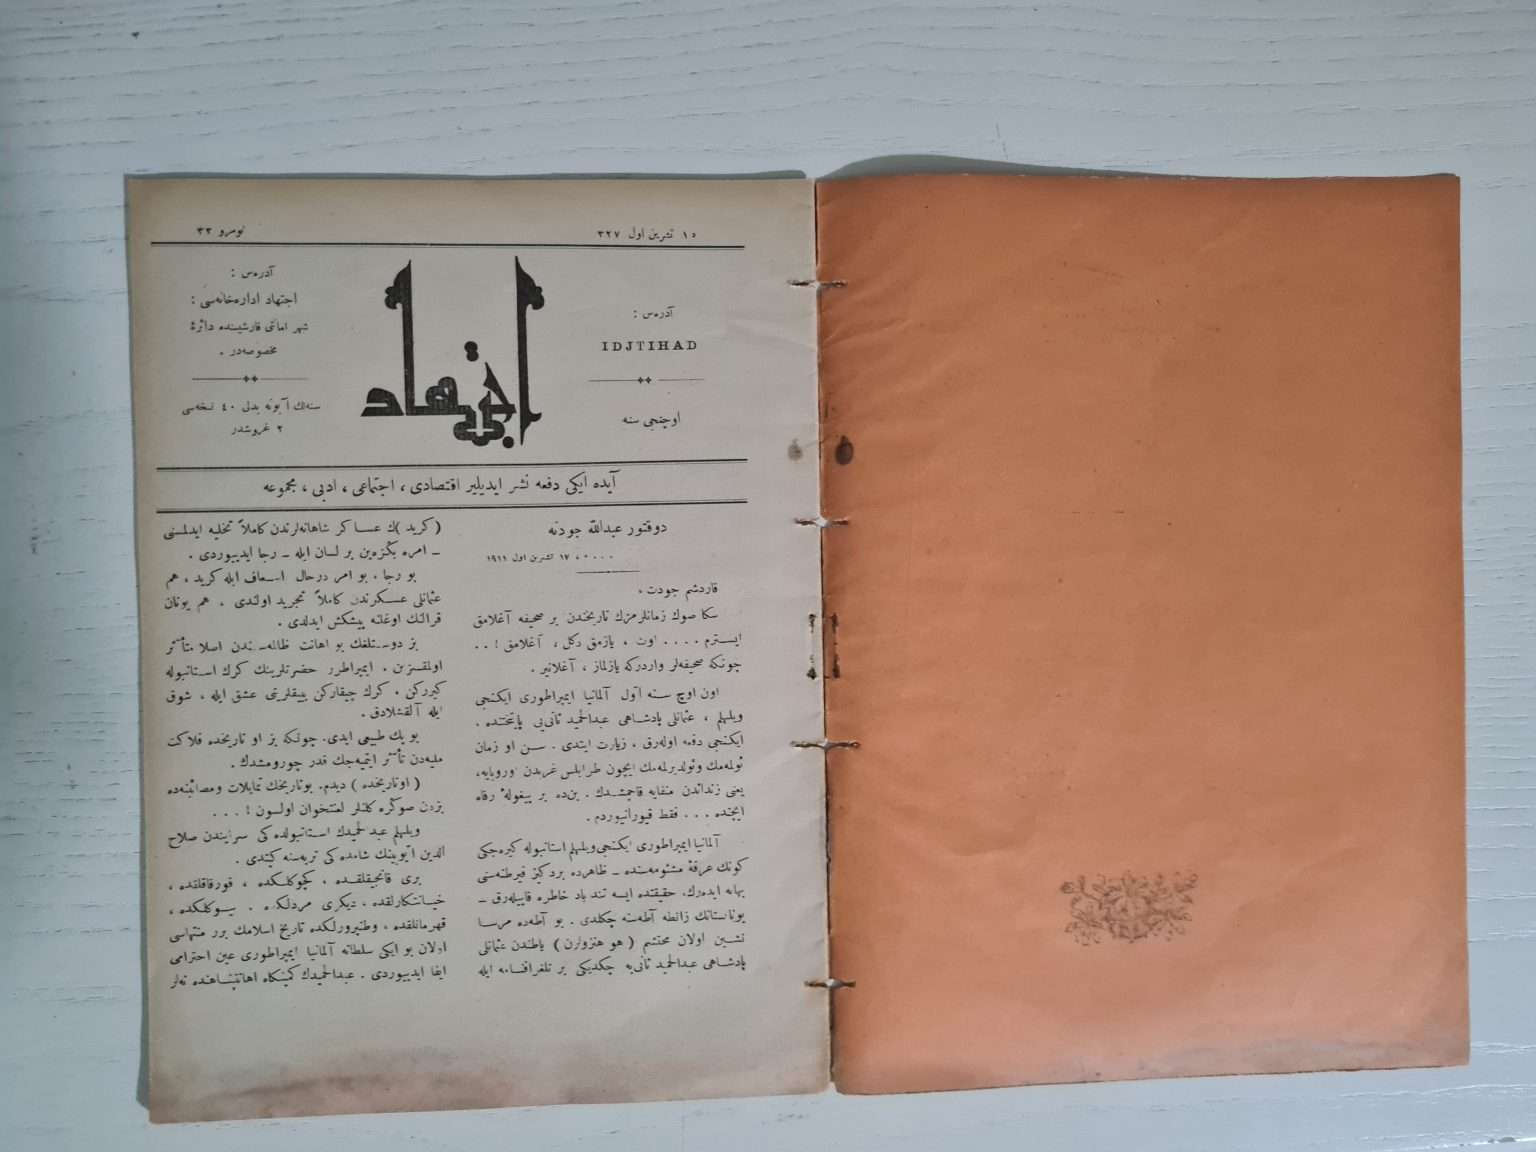 ١٥ تشرین اول ٣٢٧
نومرو ٣٣
آدره‌س :
IDJTIHAD
اوچنجی سنه
اجتهاد
آدره‌س :
اجتهاد اداره‌خانه‌سی :
شهر امانتی قارشیسنده دائرهٔ
مخصوصه‌در .
سنه‌لك آبونه بدلی ٤٠ نسخه‌سی
٢ غروشدر
آیده ایكی دفعه نشر ایدیلیر اقتصادی ، اجتماعی ، ادبی ، مجموعه
دوقتور عبدالله جودته
٠٠٠٠ ، ١٧ تشرین اول ١٩١١
قاردشم جودت ،
سكا صوك زمانلرمزك تاریخندن بر صحیفه آغلامق
ایسترم . . . . اوت ، یازمق دكل ، آغلامق ! . .
چونكه صحیفه‌لر واردركه یازلماز ، آغلانیر .
اون اوچ سنه اول آلمانیا ایمپراطوری ایكنجی
ویلهلم ، عثمانلی پادشاهی عبدالحمید ثانی‌یی پایتختنده .
ایكنجی دفعه اوله‌رق ، زیارت ایتدی . سن او زمان
ئولمه‌مك وئولدیرلمه‌مك ایچون طرابلس غربدن اوروپایه ،
یعنی زنداندن منفایه قاچمشدك . بن‌ده بر بیغولهٔ رفاه
ایچنده . . . فقط قیورانیوردم .
آلمانیا ایمپراطوری ایكنجی ویلهلم استانبوله كیره‌جكی
كونك عرفهٔ مشئومه‌سنده ـ ظاهرده بر دكز فیرطنه‌سنی
بهانه ایده‌رك ، حقیقتده ایسه تند باد خاطره قاپیله‌رق ـ
یونانستانك زانطه آطه‌سنه چكلدی . بو آطه‌ده مرسا
نشین اولان محتشم ( هوهنزولرن ) یاطندن عثمانلی
پادشاهی عبدالحمید ثانی‌یه چكدیكی بر تلغرافنامه ایله
( كرید )ك عساكر شاهانه‌لرندن كاملاً تخلیه ایدلمسنی
ـ امره بكزه‌ین بر لسان ایله ـ رجا ایدییوردی .
بو رجا ، بو امر درحال اسعاف ایله كرید ، هم
عثمانلی عسكرندن كاملاً تجرید اولندی . هم یونان
قرالنك اوغلنه پیشكش ایدلدی .
بز دوستلغك بو اهانت ظالمه‌سندن اصلا متأثر
اولمقسزین . ایمپراطور حضرتلرینك كرك استانبوله
كیرركن . كرك چیقاركن پییقلرینی عشق ایله ، شوق
ایله آلقشلادق .
بو پك طبیعی ایدی . چونكه بز او تاریخده فلاكت
ملیه‌دن تأثر ایتمیه‌جك قدر چورومشدك .
( او تاریخده ) دیدم . بوتاریخك تمایلات ومصائبنه‌ده
بزدن صوكره كلنلر لعنتخوان اولسون ! . . .
ویلهلم عبدالحمیدك استانبولده كی سرایندن صلاح
الدین ایوبینك شامده كی تربه‌سنه كیتدی .
بری قانجیقلقده ، كچوكلكده ، قورقاقلقده ،
خیانتكارلقده ، دیكری مردلكده . بیوكلكده ،
قهرمانلقده ، وطنپرورلكده تاریخ اسلامك برر منتهاسی
اولان بو ایكی سلطانه آلمانیا ایمپراطوری عین احترامی
ایفا ایدییوردی . عبدالحمیدك كمینكاه اهانتپناهنده نه‌لر